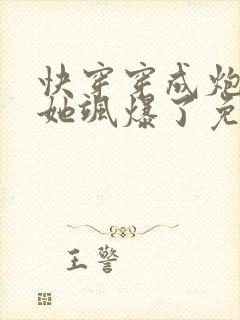 快穿穿成炮
她飒爆了免
王警